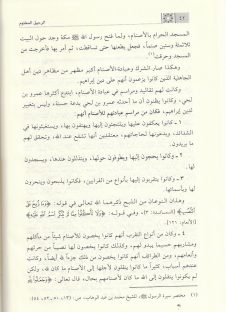 ٤٢
الرحيق المختوم
المسجد الحرام بالأصنام، ولما فتح رسول الله ﷺ مكة وجد حول البيت
ثلاثمائة وستين صنماً، فجعل يطعنها حتى تساقطت، ثم أمر بها فأخرجت من
المسجد وحرقت(١)
وهكذا صار الشرك وعبادة الأصنام أكبر مظهر من مظاهر دين أهل
الجاهلية الذين كانوا يزعمون أنهم على دين إبراهيم.
وكانت لهم تقاليد ومراسم في عبادة الأصنام،
وكانوا يظنون أن ما أحدثه عمرو بن لحي بدعة حسنة، وليس بتغيير
دين إبراهيم، فكان من مراسم عبادتهم للأصنام أنهم
١ - كانوا يعكفون عليها ويلتجئون إليها ويهتفون بها، ويستغيثونها في
الشدائد، ويدعونها لحاجاتهم، معتقدين أنها تشفع عند الله وتحقق لهم
ما يريدون.
٢ - وكانوا يحجون إليها ويطوفون حولها، ويتذللون عندها، ويسجدون
لها.
٣ - وكانوا يتقربون إليها بأنواع من القرابين، فكانوا يذبحون وينحرون
لها وبأسمائها.
وهذان النوعان من الذبح ذكرهما الله تعالى في قوله: ﴿وَمَا ذُبِحَ عَلَى
النُّصُبِ﴾ [المائدة: ٣]، وفي قوله: ﴿وَلَا تَأْكُلُوا مِمَّا لَمْ يُذْكَرِ اسْمُ اللَّهِ عَلَيْهِ﴾
[الأنعام: ١٢١]
٤ - وكان من أنواع التقرب أنهم كانوا يخصون للأصنام شيئاً من مآكلهم
ومشاربهم حسبما يبدو لهم، وكذلك كانوا يخصون لها نصيباً من حرثهم
وأنعامهم، ومن الطرائف أنهم كانوا يخصون من ذلك جزءاً لله أيضاً، وكانت
عندهم أسباب، كثيراً ما كانوا ينقلون لأجلها إلى الأصنام ما كان لله، ولكن
لم يكونوا ينقلون إلى الله ما كان لأصنامهم بحال، قال تعالى:
(١) مختصر سيرة الرسول ﷺ، للشيخ محمد بن عبد الوهاب، ص: (١٣، ٥٠، ٥١، ٥٢، ٥٤)